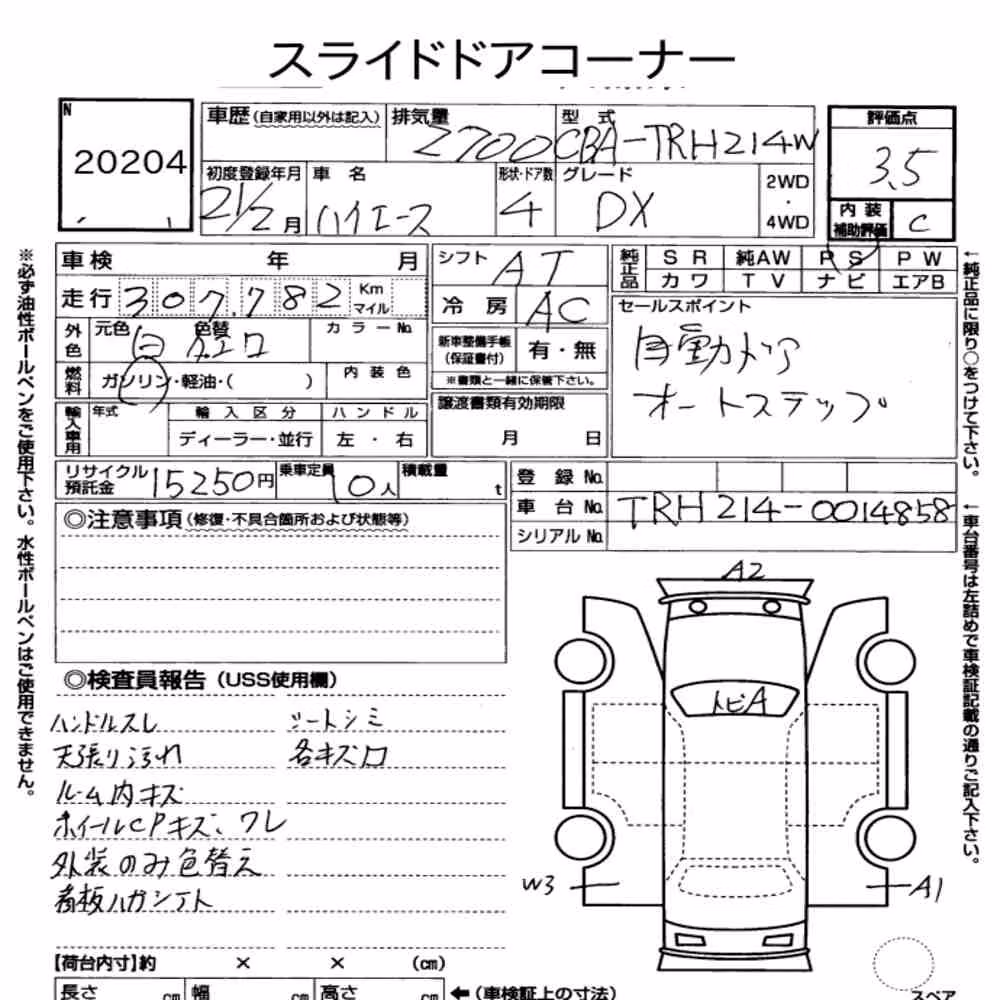 スライドドアコーナー
N
20204
車歴(自家用以外は記入) 排気量 2700 型式 CBA-TRH214W
評価点 3.5
内装補助評価 C
初度登録年月 21/2月 車名 ハイエース 形状・ドア数 4 グレード DX 2WD・4WD
車検 年 月 シフト AT
純正品 SR 純AW PS PW
カワ TV ナビ エアB
走行 307,782 Km マイル 冷房 AC
セールスポイント
自動ドア
オートステップ
外色 元色 白 色替 カラーNo.
新車整備手帳(保証書付) 有・無
※書類と一緒に保管下さい。
燃料 ガソリン・軽油・( ) 内装色
譲渡書類有効期限
月 日
輸入車用 年式 輸入区分 ハンドル
ディーラー・並行 左・右
リサイクル預託金 15250円 乗車定員 10人 積載量 t
登録No.
車台No. TRH214-0014858
シリアルNo.
◎注意事項(修復・不具合箇所および状態等)
◎検査員報告(USS使用欄)
ハンドルスレ シートシミ
天張り汚れ 各キズ凹
ルーム内キズ
ホイールCPキズ、ワレ
外装のみ色替え
看板ハガシアト
A2
トビA
W3
A1
【荷台内寸】約 × × (cm)
長さ cm 幅 cm 高さ cm ←(車検証上の寸法)
スペア
※必ず油性ボールペンをご使用下さい。水性ボールペンはご使用できません。
←純正品に限り○をつけて下さい。
←車台番号は左詰めで車検証記載の通りご記入下さい。